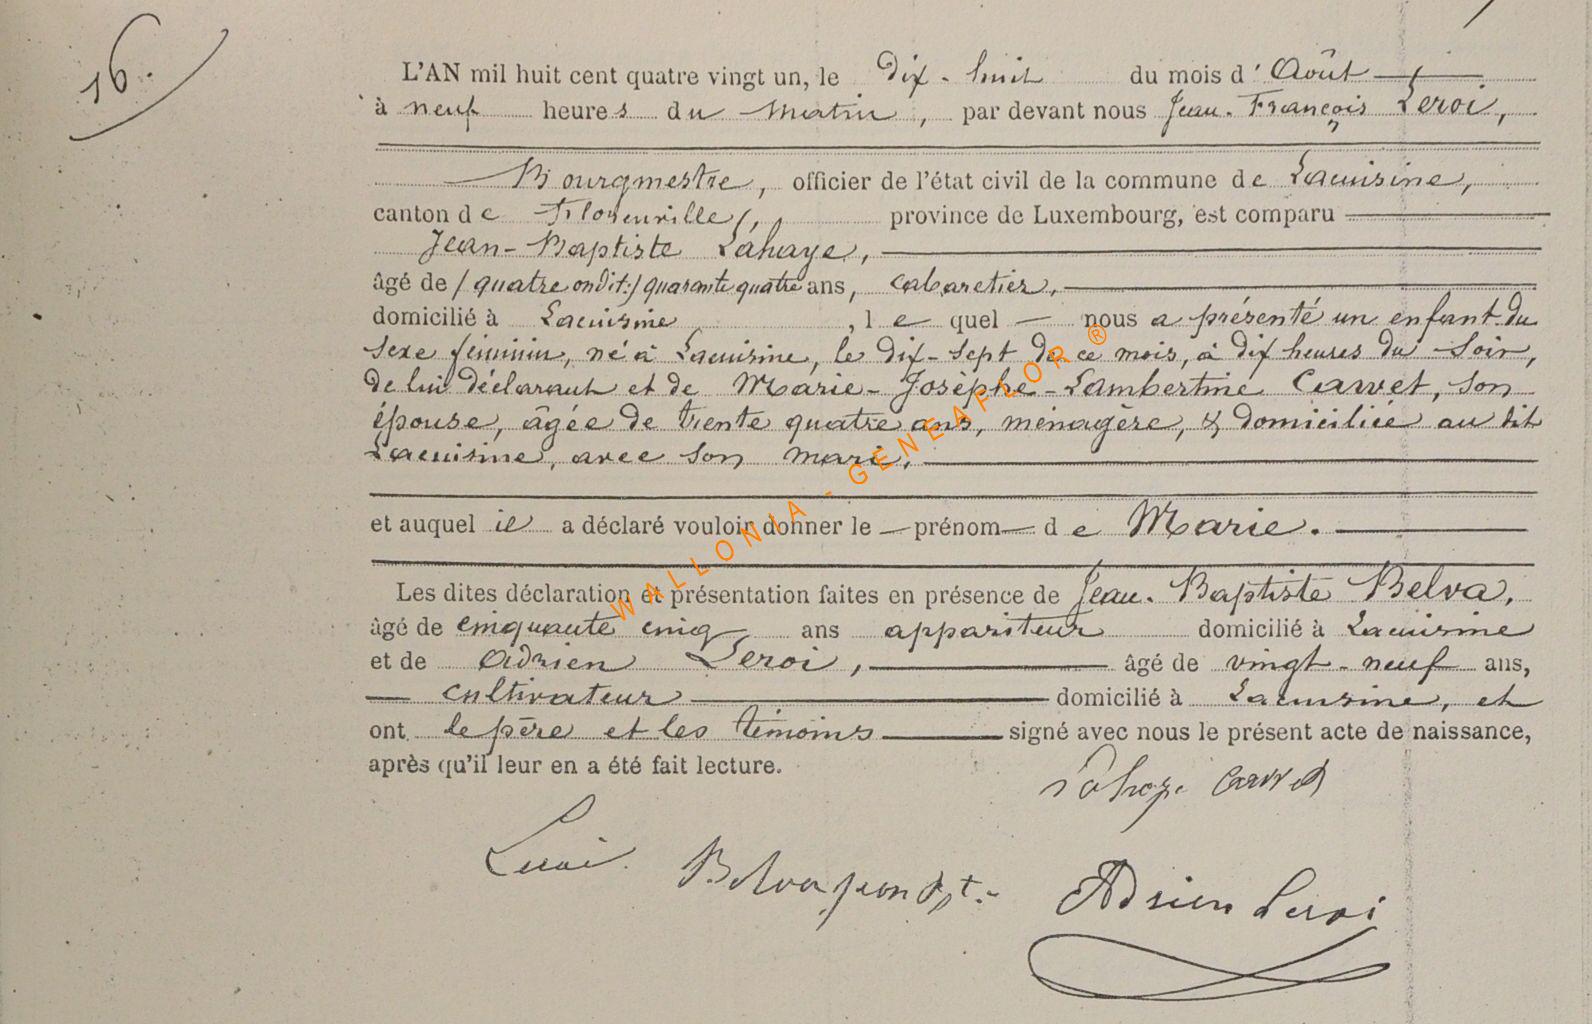 16.
L'AN mil huit cent quatre vingt un, le Dix-huit du mois d'Août
à neuf heures du matin, par devant nous Jean-François Leroi,
Bourgmestre, officier de l'état civil de la commune de Lacuisine,
canton de Florenville, province de Luxembourg, est comparu
Jean-Baptiste Lahaye,
âgé de /quatre on dit:/ quarante quatre ans, cabaretier,
domicilié à Lacuisine, lequel nous a présenté un enfant du
sexe féminin, né à Lacuisine, le dix-sept de ce mois, à dix heures du soir,
de lui déclarant et de Marie-Josèphe-Lambertine Carvet, son
épouse, âgée de trente quatre ans, ménagère, & domiciliée au dit
Lacuisine, avec son mari,
et auquel il a déclaré vouloir donner le prénom de Marie.
Les dites déclaration et présentation faites en présence de Jean-Baptiste Belva,
âgé de cinquante cinq ans appariteur domicilié à Lacuisine
et de Adrien Leroi, âgé de vingt-neuf ans,
cultivateur domicilié à Lacuisine, et
ont le père et les témoins signé avec nous le présent acte de naissance,
après qu'il leur en a été fait lecture.
Lahaye Carvet
Leroi Belva jean Bpt.
Adrien Leroi
WALLONIA - GENEAFLOR ®